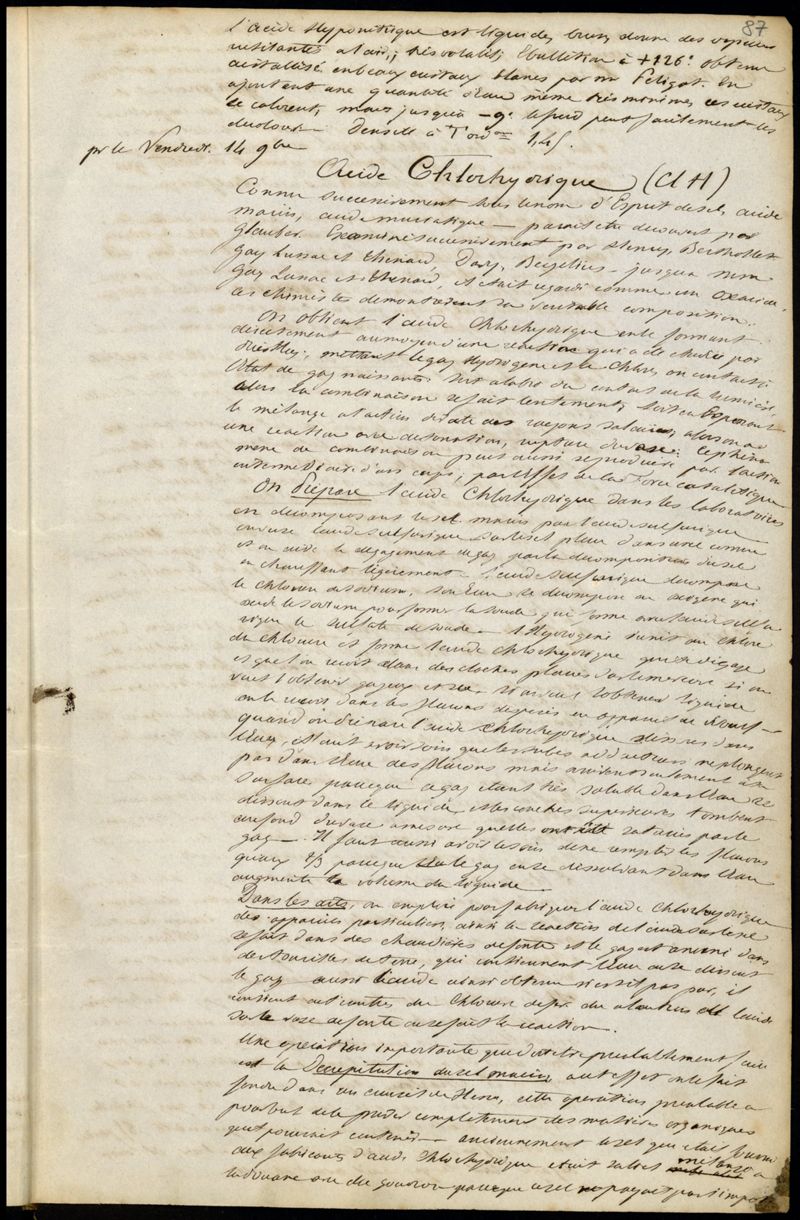 87
l'acide Hyponitrique est liquide, brun, donne des vapeurs
irritantes a l'air, très volatil; Ebullition à +126° obtenu
cristallisé en beaux cristaux blancs par mr Peligot. En
ajoutant une quantité d'eau même très minime, ces cristaux
se colorent, mais jusqu'à -9° le froid peut facilement les
decolorer. Densité à 1,45.
pr le Vendredi. 14 9bre
Acide Chlorhydrique (Cl H)
Connu successivement sous le nom d'Esprit de sel, acide
marin, acide muriatique — parait etre decouvert par
Glauber. Examiné successivement par Henry, Berthollet
Gay Lussac et Thenard, Davy, Berzelius — jusqu'a
Gay Lussac et Thenard, il etait regardé comme un oxacide.
ces chimistes demontrerent sa veritable composition.
On obtient l'acide Chlorhydrique en le formant
directement au moyen d'une reaction qui a été etudiée par
mettant le gaz Hydrogene et le Chlore en contact à
l'état de gaz naissants soit a l'abri du contact de la lumière,
alors la combinaison se fait lentement; soit en Exposant
le mélange a l'action directe des rayons solaires, alors on a
une reaction avec detonation, rupture du vase. le phéno
mène de combinaison peut aussi se produire par l'action
intermediaire d'un corps, par l'effet de la Force catalytique
On prépare l'acide Chlorhydrique dans les laboratoires
en decomposant le sel marin par l'acide sulfurique —
on verse l'acide sulfurique sur le sel placé dans une cornue
et on aide le degagement du gaz par la decomposition du sel
en chauffant légèrement — l'acide sulfurique decompose
le chlorure de sodium, son Eau se decompose en oxigène qui
oxide le sodium pour former la soude qui forme avec l'acide sulfu
rique le sulfate de soude — l'Hydrogène s'unit au Chlore
du Chlorure et forme l'acide Chlorhydrique qui se dégage
et que l'on reçoit dans des cloches placées sur le mercure si on
veut l'obtenir gazeux et sec. Si on veut l'obtenir liquide
on le reçoit dans les flacons disposés en appareil de Woulf —
quand on prépare l'acide Chlorhydrique dissous dans
l'Eau, il faut avoir soin que les tubes adducteurs ne plongent
pas dans l'Eau des flacons mais arrivent seulement à la
surface parceque ce gaz etant très soluble dans l'Eau se
dissout dans le liquide et les couches superieures tombent
au fond du vase a mesure qu'elles ont été saturées par le
gaz —. Il faut aussi avoir le soin de ne remplir les flacons
qu'aux 2/3 parceque le gaz en se dissolvant dans l'Eau
augmente le volume du liquide
Dans les arts, on emploie pour fabriquer l'acide Chlorhydrique
des appareils particuliers, ainsi la reaction de l'acide sur le sel
se fait dans des chaudières de fonte et le gaz est amené dans
des bouteilles de terre, qui contiennent l'Eau où se dissout
le gaz — aussi l'acide ainsi obtenu n'est il pas pur, il
contient au contraire du Chlorure de fer du a l'action de l'acide
sur le vase de fonte où se fait la reaction.
Une opération importante que doit etre prealablement faite
est la Decrepitation du sel marin, a cet effet on le fait
fondre dans un creuset de terre, cette operation prealable a
pour but de le priver completement des matières organiques
qu'il pourrait contenir — anciennement le sel qui etait fourni
aux fabricants d'acide Chlorhydrique etait sali et mélangé a
la douane avec du goudron parceque ce sel ne payait pas d'impots